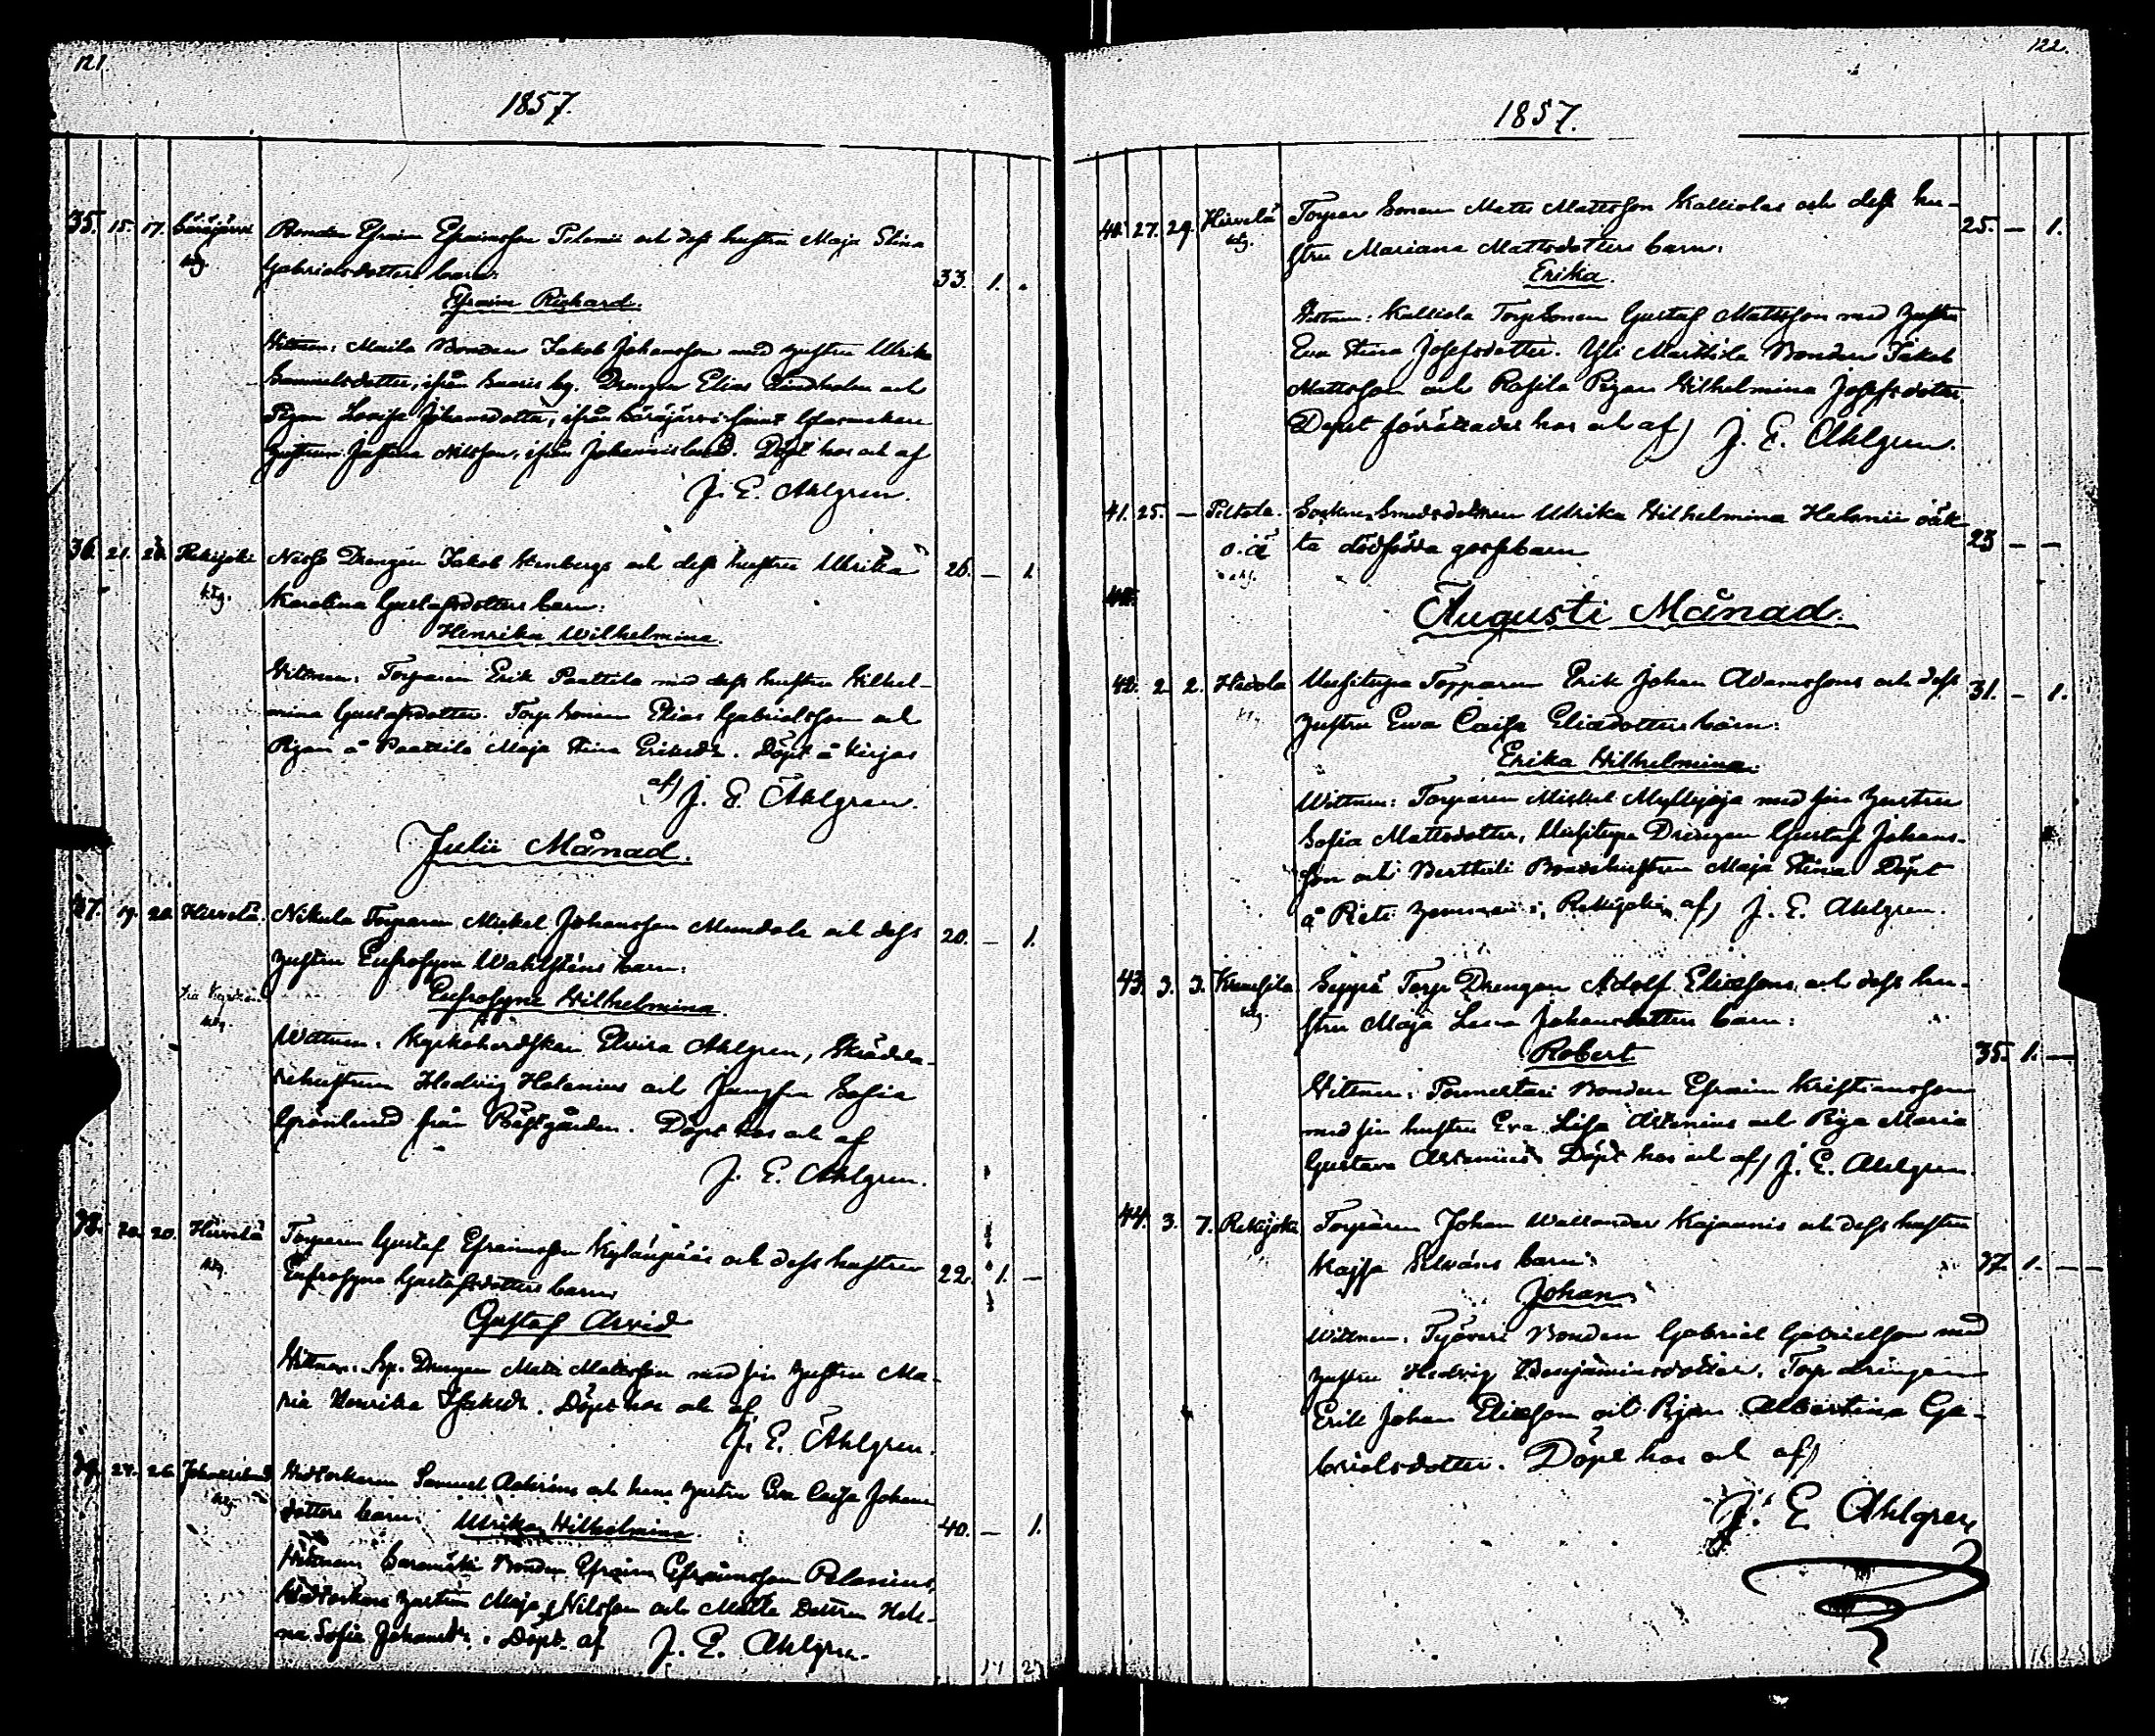 121.
1857.
35. 15. 17. Säräjärvi Bonden Efraim Efraimsson Polonii och dess hustru Maja Stina
Gabrielsdotters barn: 33. 1.
Efraim Richard.
Wittnen: Maila Bonden Jakob Johansson med hustru Ulrika
Samuelsdotter, ifrån by. Drengen Elias Lindholm och
Pigan Lovisa Johansdotter, ifrån Säräjärvi samt
hustrun Justina Nilsson, ifrån Johannislund. Döpt hos och af
J. E. Ahlgren.
36. 21. Rekijoki Drengen Jakob Stenbergs och dess hustru Ulrika 26. — 1.
Karolina Gustafsdotters barn:
Henrika Wilhelmina.
Wittnen: Torparen Erik Paattila med dess hustru Wilhel-
mina Gustafsdotter. Torpsonen Elias Gabrielsson och
Pigan å Paattila Maja Stina Eriksdr. Döpt å Kirjas
af) J. E. Ahlgren.
Julii Månad.
37. 19. 20. Hirvelä. Nikula Torparen Mickel Johansson Mundola och dess 20. — 1.
hustru Eufrosyne Wahlsténs barn:
Eufrosyne Wilhelmina.
Wittnen: Kyrkoherdskan Elvira Ahlgren, Skrädda-
rehustrun Hedvig Helenius och Jungfru Sofia
Grönlund från Prästgården. Döpt hos och af
J. E. Ahlgren.
38. 20. 20. Hirvelä Torparen Gustaf Efraimsson Kylänpääs och dess hustru 22. 1. —
Eufrosyne Gustafsdotters barn
Gustaf Arvid
Wittnen: Drengen Matts Mattsson med sin hustru Ma-
ria Henrika Isaksdr. Döpt hos och af
J. E. Ahlgren.
39. 24. 26. Johannislund Samuel och hans hustru Eva Caisa Johans
dotters barn: Ulrika Wilhelmina. 40. — 1.
Wittnen: Bonden Efraim Efraimsson Polonius,
hustrun Maja Nilsson och Dottren Hele-
na Sofia Johansdr. Döpt af J. E. Ahlgren.
122.
1857.
40. 27. 29. Hirvelä Torpare Sonen Matts Mattsson Kalliolas och dess hu- 25. — 1.
stru Mariana Mattsdotters barn:
Erika.
Wittnen: Kalliola TorpSonen Gustaf Mattsson med hustru
Eva Stina Josefsdotter. Yli Marttila Bonden Jakob
Mattsson och Pigan Wilhelmina Josefsdotter.
Dopet förrättades hos och af) J. E. Ahlgren.
41. 25. — Piltola. Socknen Smedsdottren Ulrika Wilhelmina Helenii oäk-
o. ä ta dödfödda gossebarn 23 — —
Augusti Månad.
42. 2. 2. Hidola Uusitupa Torparen Erik Johan Adamssons och dess 31. — 1.
hustru Ewa Caisa Eliædotters barn:
Erika Wilhelmina.
Wittnen: Torparen Mickel Myllyoja med sin hustru
Sofia Mattsdotter, Uusitupa Drengen Gustaf Johans-
son och Berttuli Bondehustrun Maja Stina. Döpt
å Rekijoki, af) J. E. Ahlgren.
43. 3. 3. Seppä Torp Drengen Adolf Eliæssons och dess hu-
stru Maja Lena Johansdotters barn:
Robert 35. 1. —
Wittnen: Bonden Efraim Kristiansson
med sin hustru Eva Lisa Artenius och Piga Maria
Gustava Artenius. Döpt hos och af) J. E. Ahlgren.
44. 3. 7. Rekijoki Torparen Johan Wallander Kajaunis och dess hustru
Kajsa barn: 37. 1. — —
Johan
Wittnen: Työveri Bonden Gabriel Gabrielsson med
hustru Hedvig Benjaminsdotter. Torp drengen
Erik Johan Eliæsson och Pigan Albertina Ga-
brielsdotter. Döpt hos och af)
J. E. Ahlgren